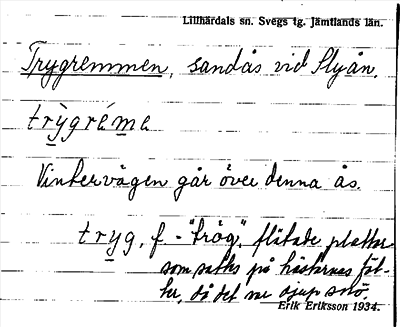 Lillhärdals sn. Svegs tg. Jämtlands län.
Trygremmen, sandås vid Slyån.
trỳgréme
Vintervägen går över denna ås.
tryg, f - "tròg", flätade plattor
som sattes på hästarnas föt-
ter, då det var djup snö.
Erik Eriksson 1934.